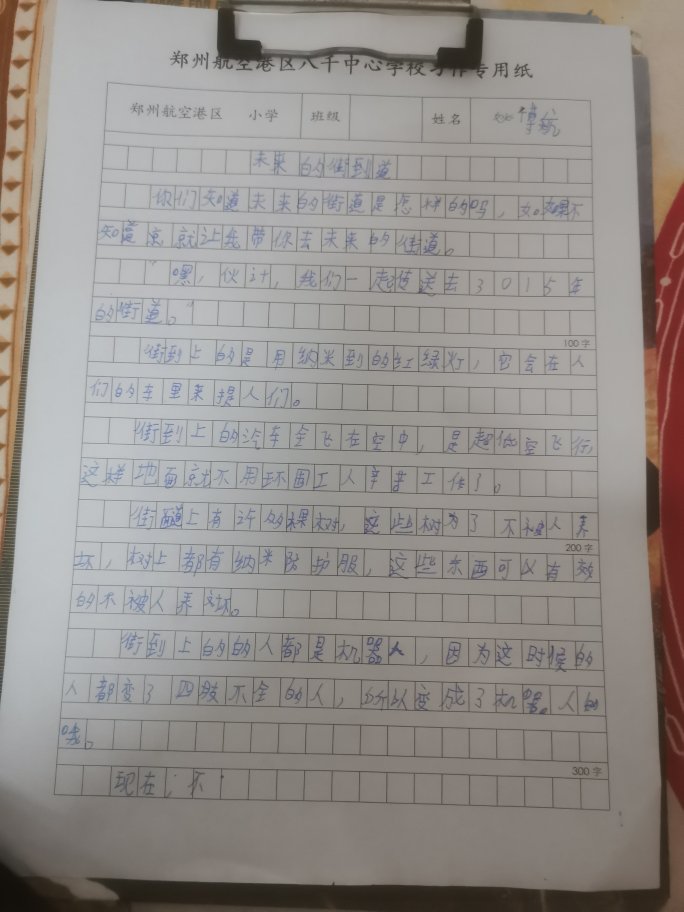 郑州航空港区八千中心学校习作专用纸
郑州航空港区 小学 班级 姓名 博航
未来的街到道
你们知道未来的街道是怎样的吗，如果不
知道京就让我带你去未来的街道。
“嘿，伙计，我们一起传送去3015年
的街道。”
100字
街到上的是用纳米到的红绿灯，它会在人
们的车里来提人们。
街到上的汽车全飞在空中，是超低空飞行，
这样地面就不用环固工人辛苦工作了。
街道上有许多的棵树，这些树为了不被人弄
200字
坏，树上都有纳米防护服，这些东西可以有效
的不被人弄坏。
街到上的的人都是机器人，因为这时候的
人都变了四肢不全的人，所以变成了机器人的
哦。
300字
现在，不